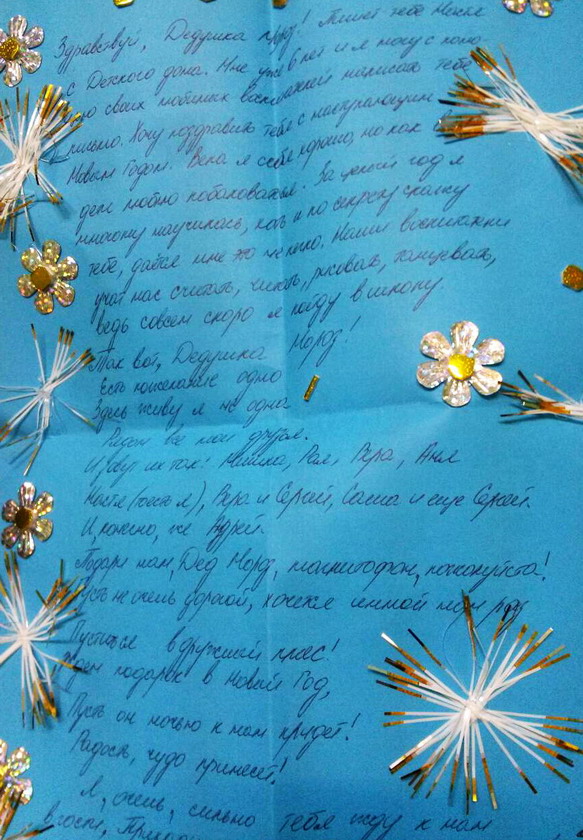 Здравствуй, Дедушка Мороз! Пишет тебе Настя
с Детского дома. Мне уже 6 лет и я могу с помо-
щью своих любимых воспитателей написать тебе
письмо. Хочу поздравить тебя с наступающим
Новым Годом. Вела я себя хорошо, но как
дети люблю побаловаться. За целый год я
многому научилась, хоть и по секрету скажу
тебе, даётся мне это не легко. Наши воспитатели
учат нас считать, читать, рисовать, танцевать,
ведь совсем скоро я пойду в школу.
Так вот, Дедушка Мороз!
Есть пожелание одно
Здесь живу я не одна
Рядом все мои друзья.
И зовут их так: Мишка, Рая, Вера, Аня
Настя (тоесть я), Вера и Сергей, Саша и еще Сергей.
И, конечно, же Андрей.
Подари нам, Дед Мороз, магнитофон, пожалуйста!
Пусть не очень дорогой, хочется зимой нам
Пуститься в дружный пляс!
Ждем подарок в Новый Год,
Пусть он ночью к нам придет!
Радость, чудо принесет!
Я, очень, сильно тебя жду к нам
в гости,